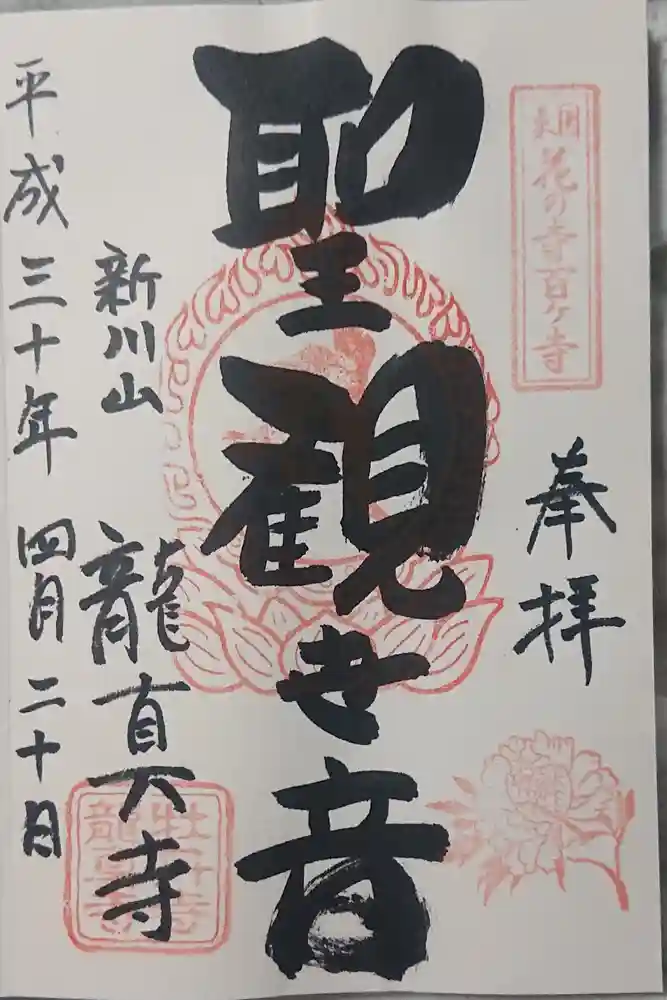 東国花の寺百ヶ寺
奉拝
聖観世音
新川山 龍真寺
平成三十年 四月二十日